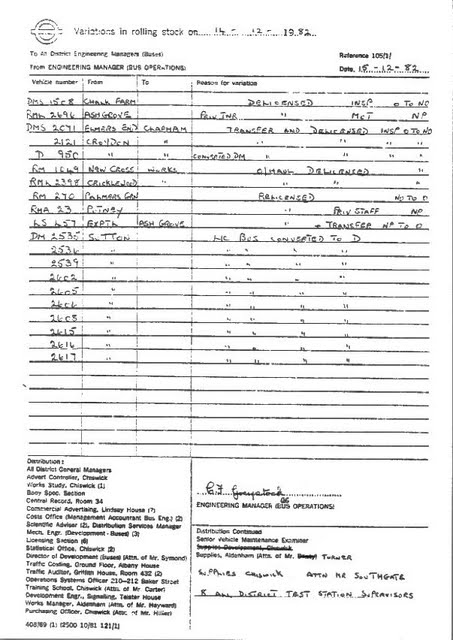 Variations in rolling stock on 14 - 12 - 1982
To All District Engineering Managers (Buses)
Reference 105/1/
From ENGINEERING MANAGER (BUS OPERATIONS)
Date 15-12-82
Vehicle number From To Reason for variation
DMS 1508 CHALK FARM DELICENSED INSP O TO NO
RML 2696 ASH GROVE PRIV INR " MCT NP
DMS 2071 ELMERS END CLAPHAM TRANSFER AND DELICENSED INSP O TO NO
2121 CROYDON " " " " "
D 950 " " CONVERTED DM " " " "
RM 1649 NEW CROSS WORKS O/HAUL DELICENSED
RML 2398 CRICKLEWOOD " " "
RM 270 PALMERS GRN RELICENSED NO TO O
RMA 23 PUTNEY " PRIV STAFF NP
LS 457 EXPTL ASH GROVE " + TRANSFER NP TO O
DM 2535 SUTTON LIC BUS CONVERTED TO D
2536 " " " " "
2539 " " " " "
2602 " " " " "
2605 " " " " "
2606 " " " " "
2608 " " " " "
2615 " " " " "
2616 " " " " "
2617 " " " " "
Distribution:
All District General Managers
Advert Controller, Chiswick
Works Study, Chiswick (1)
Body Spec. Section
Central Record, Room 34
Commercial Advertising, Lindsay House (7)
Costs Office (Management Accountant Bus Eng.) (2)
Scientific Adviser (2), Distribution Services Manager
Mech. Engr. (Development - Buses) (3)
Licensing Section (6)
Statistical Office, Chiswick (2)
Director of Development (Buses) (Attn. of Mr. Symond)
Traffic Costing, Ground Floor, Albany House
Traffic Auditor, Griffith House, Room 432 (2)
Operations Systems Officer 210-212 Baker Street
Training School, Chiswick (Attn. of Mr. Carter)
Development Engr., Signalling, Telstar House
Works Manager, Aldenham (Attn. of Mr. Hayward)
Purchasing Officer, Chiswick (Attn. of Mr. Hiller)
408/89 (1) (2500 10/81 121/1)
ENGINEERING MANAGER (BUS OPERATIONS)
Distribution Continued
Senior Vehicle Maintenance Examiner
Supplies Development, Chiswick
Supplies, Aldenham (Attn. of Mr. TURNER
SUPPLIES CHISWICK ATTN MR SOUTHGATE
8 AN DISTRICT TEST STATION SUPERVISORS